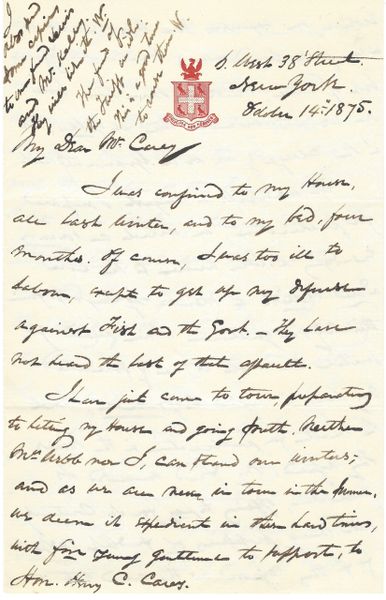 6. West 38' Street.
New York
October 14th 1875.
My Dear Mr Carey
I was confined to my House,
all last Winter, and to my bed, four
months. Of course, I was too ill to
labour, except to get up my defense
against Fish and the Govt. – They have
not heard the last of that assault.
I have just come to town, preparatory
to letting my House and going South. Neither
Mrs Webb nor I, can stand our winters;
and as we are never in town in the Summer,
we deem it expedient in these hard times,
with four young gentlemen to support, to
Hon. Henry C. Carey.
I
also send
some copies
to
and Mr
they will like it. W.
The
the Tariff
This is a good time
to
W.